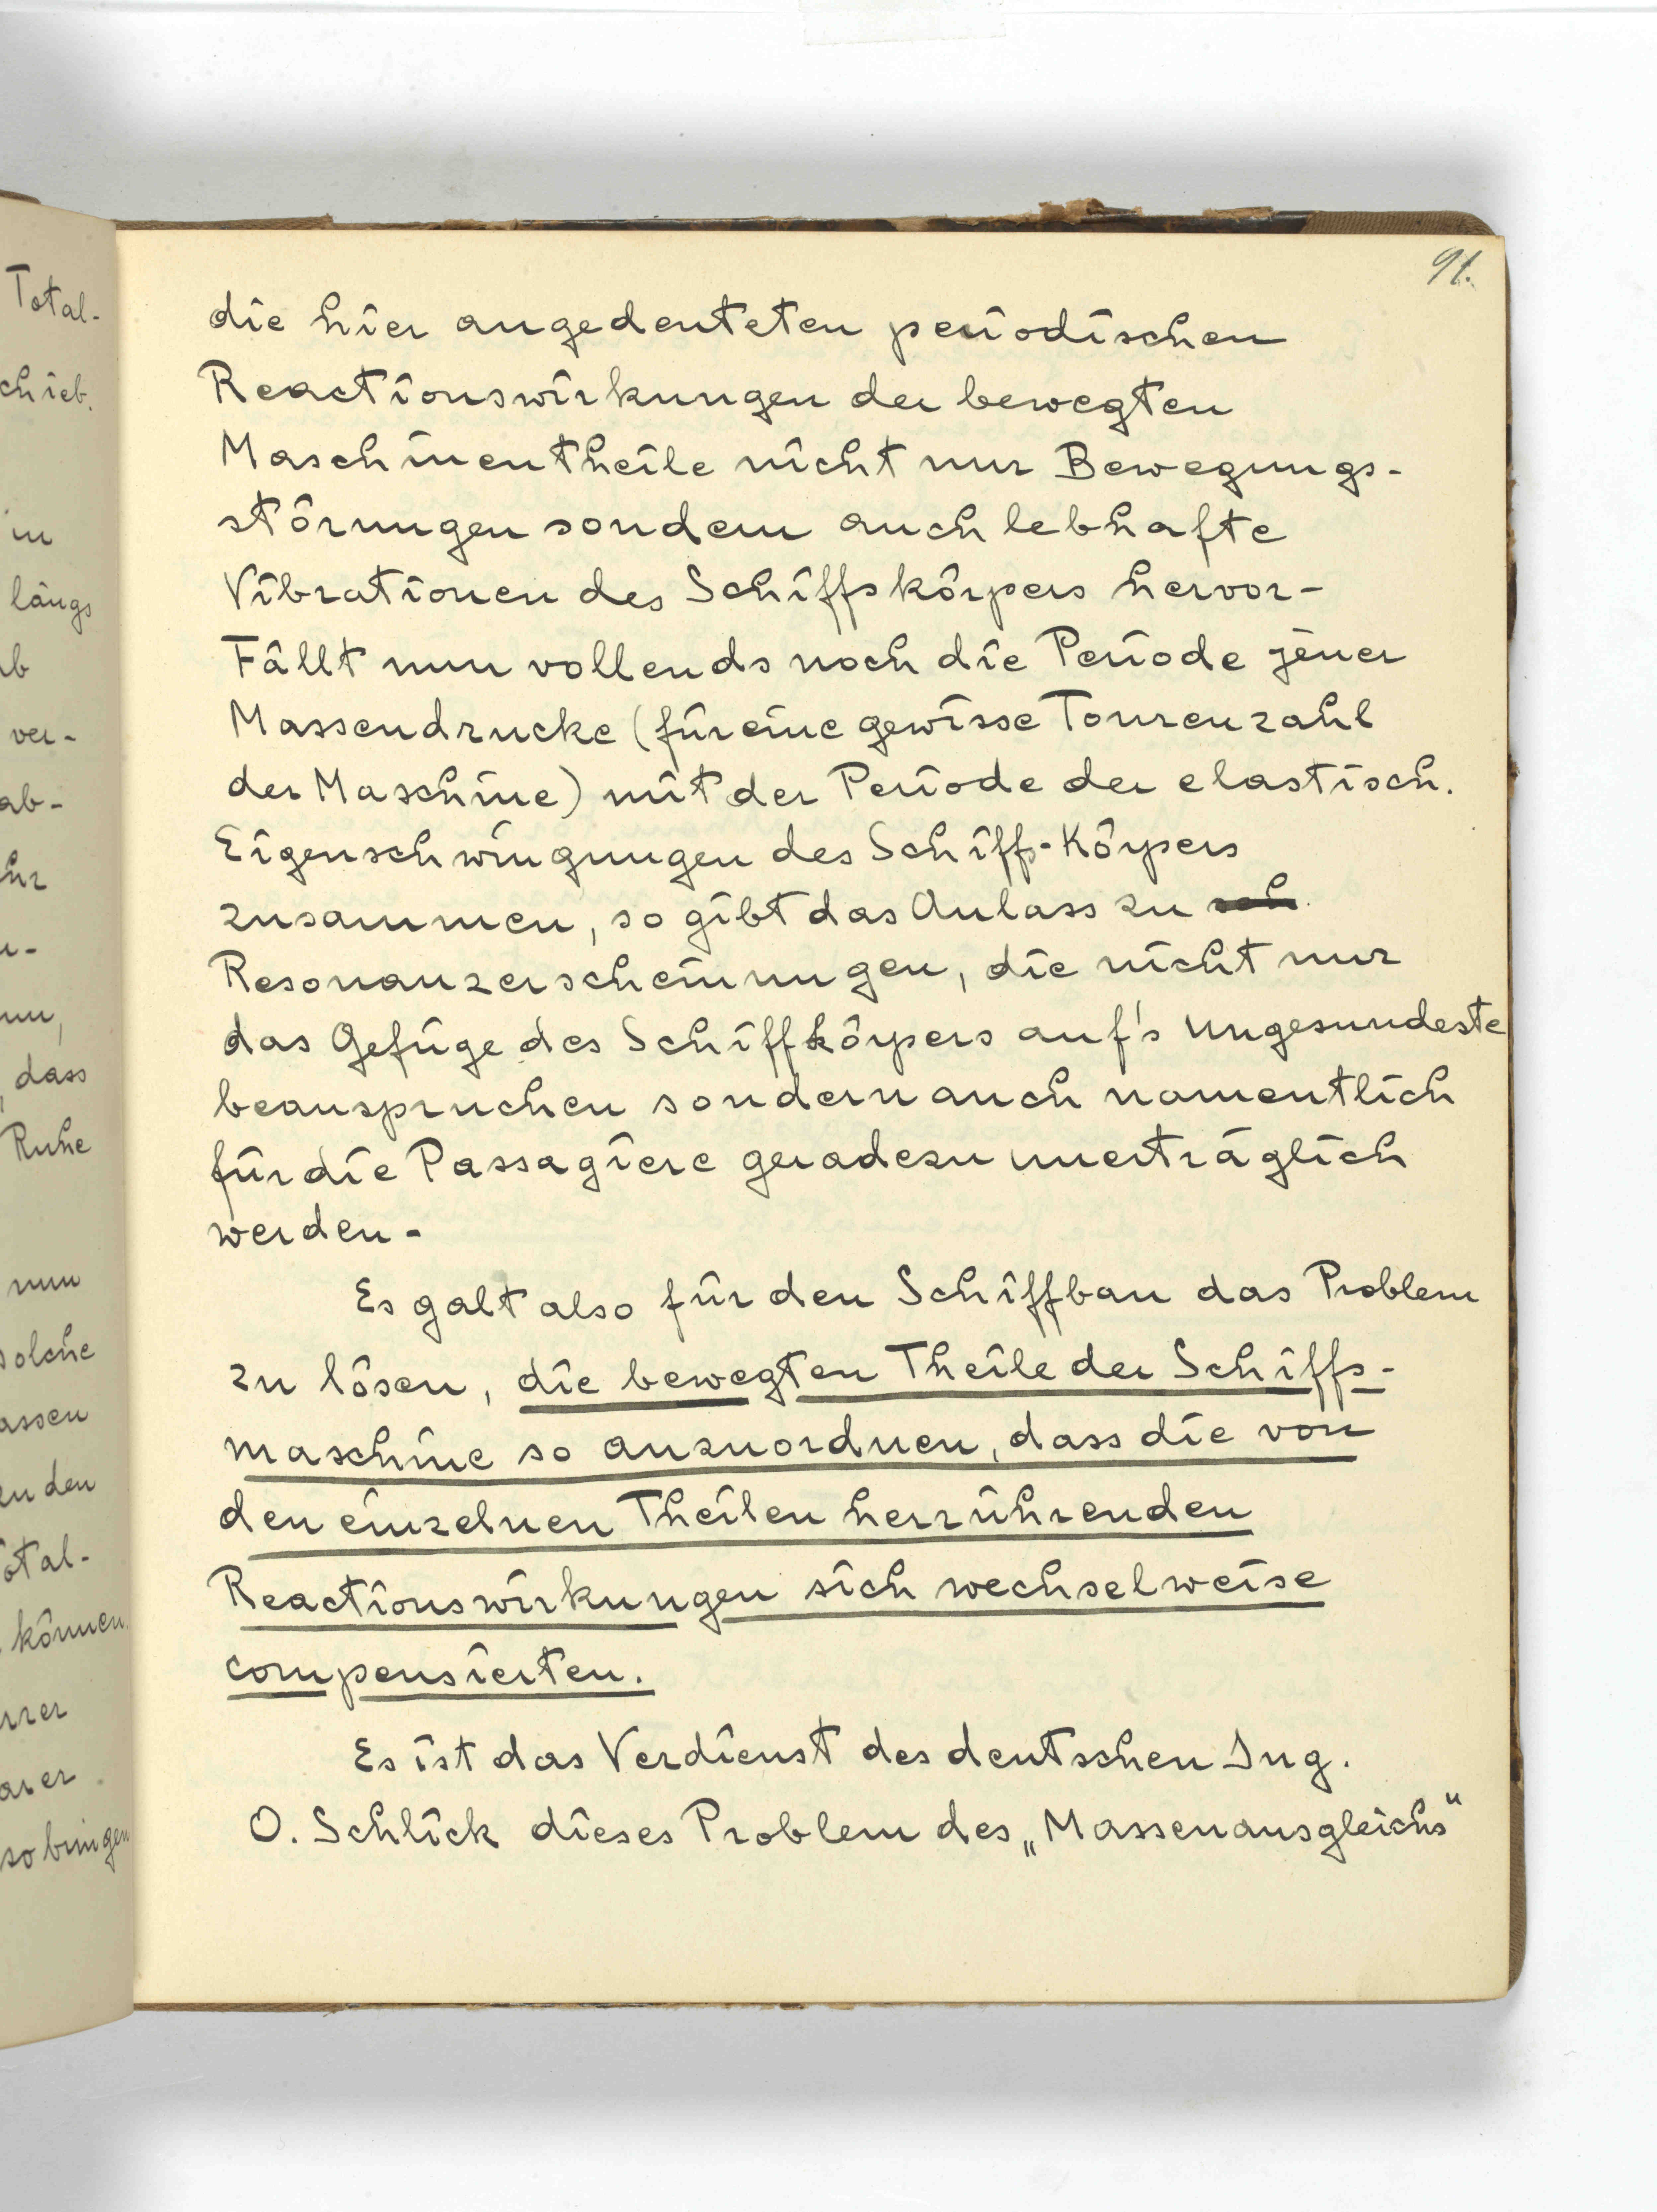 91.
die hier angedeuteten periodischen
Reactionswirkungen der bewegten
Maschinentheile nicht nur Bewegungs-
störungen sondern auch lebhafte
Vibrationen des Schiffskörpers hervor-
Fällt nun vollends noch die Periode jener
Massendrucke (für eine gewisse Tourenzahl
der Maschine) mit der Periode der elastisch.
Eigenschwingungen des Schiff-Körpers
zusammen, so gibt das Anlass zu
Resonanzerscheinungen, die nicht nur
das Gefüge des Schiffkörpers auf's Ungesundeste
beanspruchen sondern auch namentlich
für die Passagiere geradezu unerträglich
werden-
Es galt also für den Schiffbau das Problem
zu lösen, die bewegten Theile der Schiffs-
maschine so anzuordnen, dass die von
den einzelnen Theilen herrührenden
Reactionswirkungen sich wechselweise
compensierten.
Es ist das Verdienst des deutschen Ing.
O. Schlick dieses Problem des „Massenausgleichs“
Total-
chieb.
in
längs
ver-
ab-
dass
Ruhe
nun
solche
assen
zu den
otal-
können.
so bringen